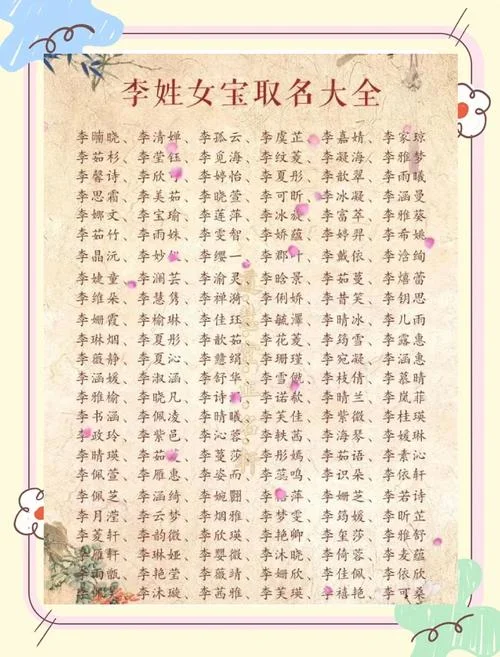 李姓女宝取名大全
李晴晓、李清婵、李孤云、李虞芷、李嘉婧、李家琼
李茹杉、李莹钰、李觅海、李纹菱、李凝海、李雅梦
李馨诗、李欣、李婷怡、李夏彤、李歆翠、李雨曦
李思霜、李美茹、李晓萱、李可昕、李冰凝、李涵曼
李娜文、李宝瑜、李莲萍、李冰旋、李富萃、李雅葵
李茹竹、李雨姝、李雯智、李娇蕴、李婷羿、李希姚
李晶沅、李妙、李缨一、李郡叶、李戴依、李浛绚
李婕童、李澜芸、李渝灵、李晗景、李茹蔓、李熺蕾
李维朵、李慧隽、李禅漪、李俐娇、李昔笑、李钥思
李姗霞、李榆琳、李佳珏、李毓潭、李晴冰、李几雨
李琳烟、李夏彤、李歆茹、李花菱、李筠雪、李露惠
李薇静、李夏沁、李慧绢、李珊瑾、李宛凝、李涵惠
李涵媛、李淑涵、李舒华、李雪儆、李枝倩、李慕晴
李雅榆、李晓凡、李诗涵、李诺欷、李晴兰、李岚菲
李书涵、李佩凌、李晴曦、李芙佳、李紫微、李桂瑛
李政玲、李紫邑、李沁蓉、李轶茜、李海琴、李媛琳
李晴瑛、李茹菱、李蔓莎、李彤嫣、李茹语、李素沁
李佩萱、李雁惠、李姿而、李蕊鸣、李识朵、李依轩
李佩芝、李涵绮、李婉翾、李梧萍、李姗芝、李若诗
李月滢、李云梦、李烟雅、李梦雯、李筠媛、李昕芷
李菱轩、李韵微、李欣瑛、李艳卿、李玺莎、李雅舒
李雁轩、李琳娅、李婴微、李沐晓、李倚蓉、李麦蕴
李雨甑、李艳莹、李薇靖、李姗欣、李佳佩、李依欣
李佩、李沐璇、李茜雅、李芙瑛、李禧艳、李可桑